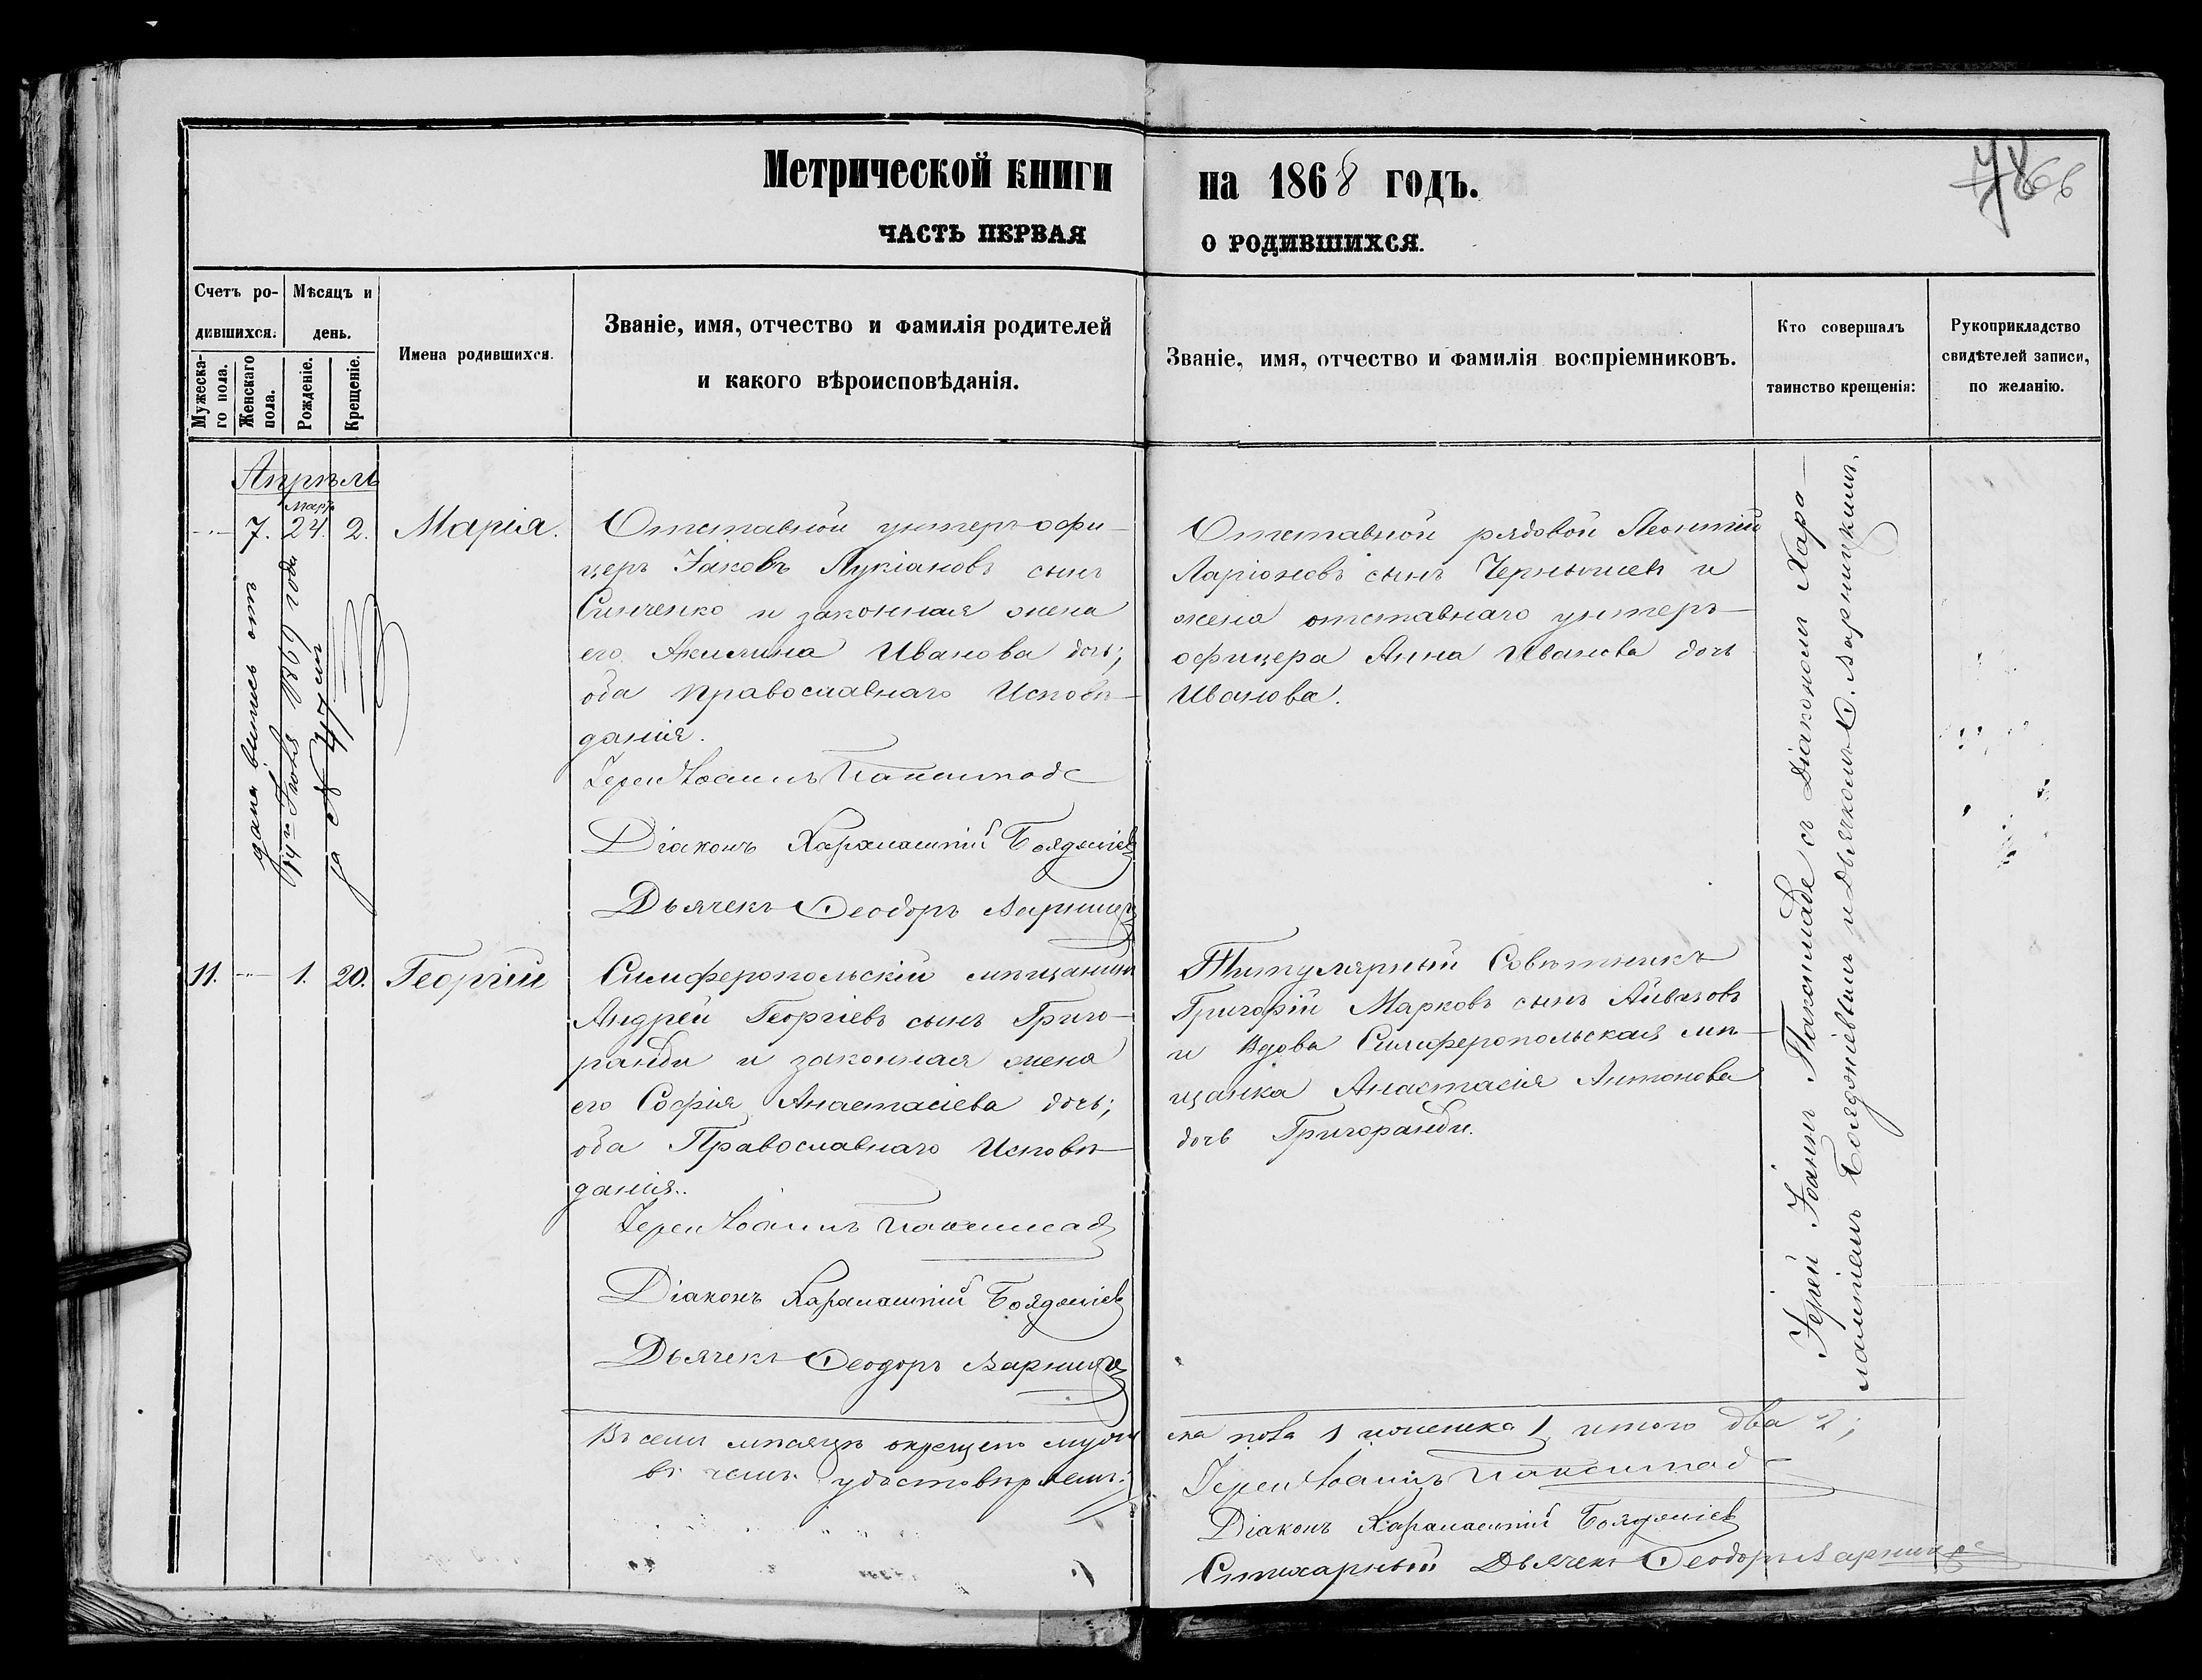 Метрической книги
на 1868 годъ.
ЧАСТЬ ПЕРВАЯ
О РОДИВШИХСЯ.
78
66
Счетъ ро-
дившихся.
Мужеска-
го пола.
Женскаго
пола.
Мѣсяцъ и
день.
Рожденіе.
Крещеніе.
Имена родившихся.
Званіе, имя, отчество и фамилія родителей
и какого вѣроисповѣданія.
Званіе, имя, отчество и фамилія воспріемниковъ.
Кто совершалъ
таинство крещенія:
Рукоприкладство
свидѣтелей записи,
по желанію.
Апрѣль
Март
7. 24. 2. Марія.
Отставной унтеръ-офи-
церъ Іаковъ Лукіановъ сынъ
Синченко и законная жена
его Акилина Иванова дочь;
оба православнаго Исповѣ-
данія.
Іерей Іоаннъ
Діаконъ Харалампій Бояджіев
Дьячекъ Ѳеодоръ
Отставной рядовой Леонтій
Ларіоновъ сынъ Чернышевъ и
жена отставнаго унтеръ-
офицера Анна Иванова дочь
Иванова.
дана выпись отъ
14го Іюля 1869 года
за № 47мъ
11. 1. 20. Георгій
Симферопольскій мѣщанинъ
Андрей Георгіевъ сынъ Григо-
ранди и законная жена
его Софія Анастасіева дочь;
оба Православнаго Исповѣ-
данія.
Іерей Іоаннъ
Діаконъ Харалампій Бояджіев
Дьячекъ Ѳеодоръ
Титулярный Совѣтникъ
Григорій Марковъ сынъ Айвазовъ
и Вдова Симферопольская мѣ-
щанка Анастасія Антонова
дочь Григоранди.
Іерей Іоаннъ с Діакономъ Хара-
лампіемъ Бояджіевымъ и Дьячкомъ Ѳ.
Въ семъ мѣсяцѣ окрещено муж
ска пола 1 и женска 1 итого два 2;
въ чемъ удостовѣряемъ:
Іерей Іоаннъ
Діаконъ Харалампій Бояджіев
Стихарный Дьячекъ Ѳеодоръ